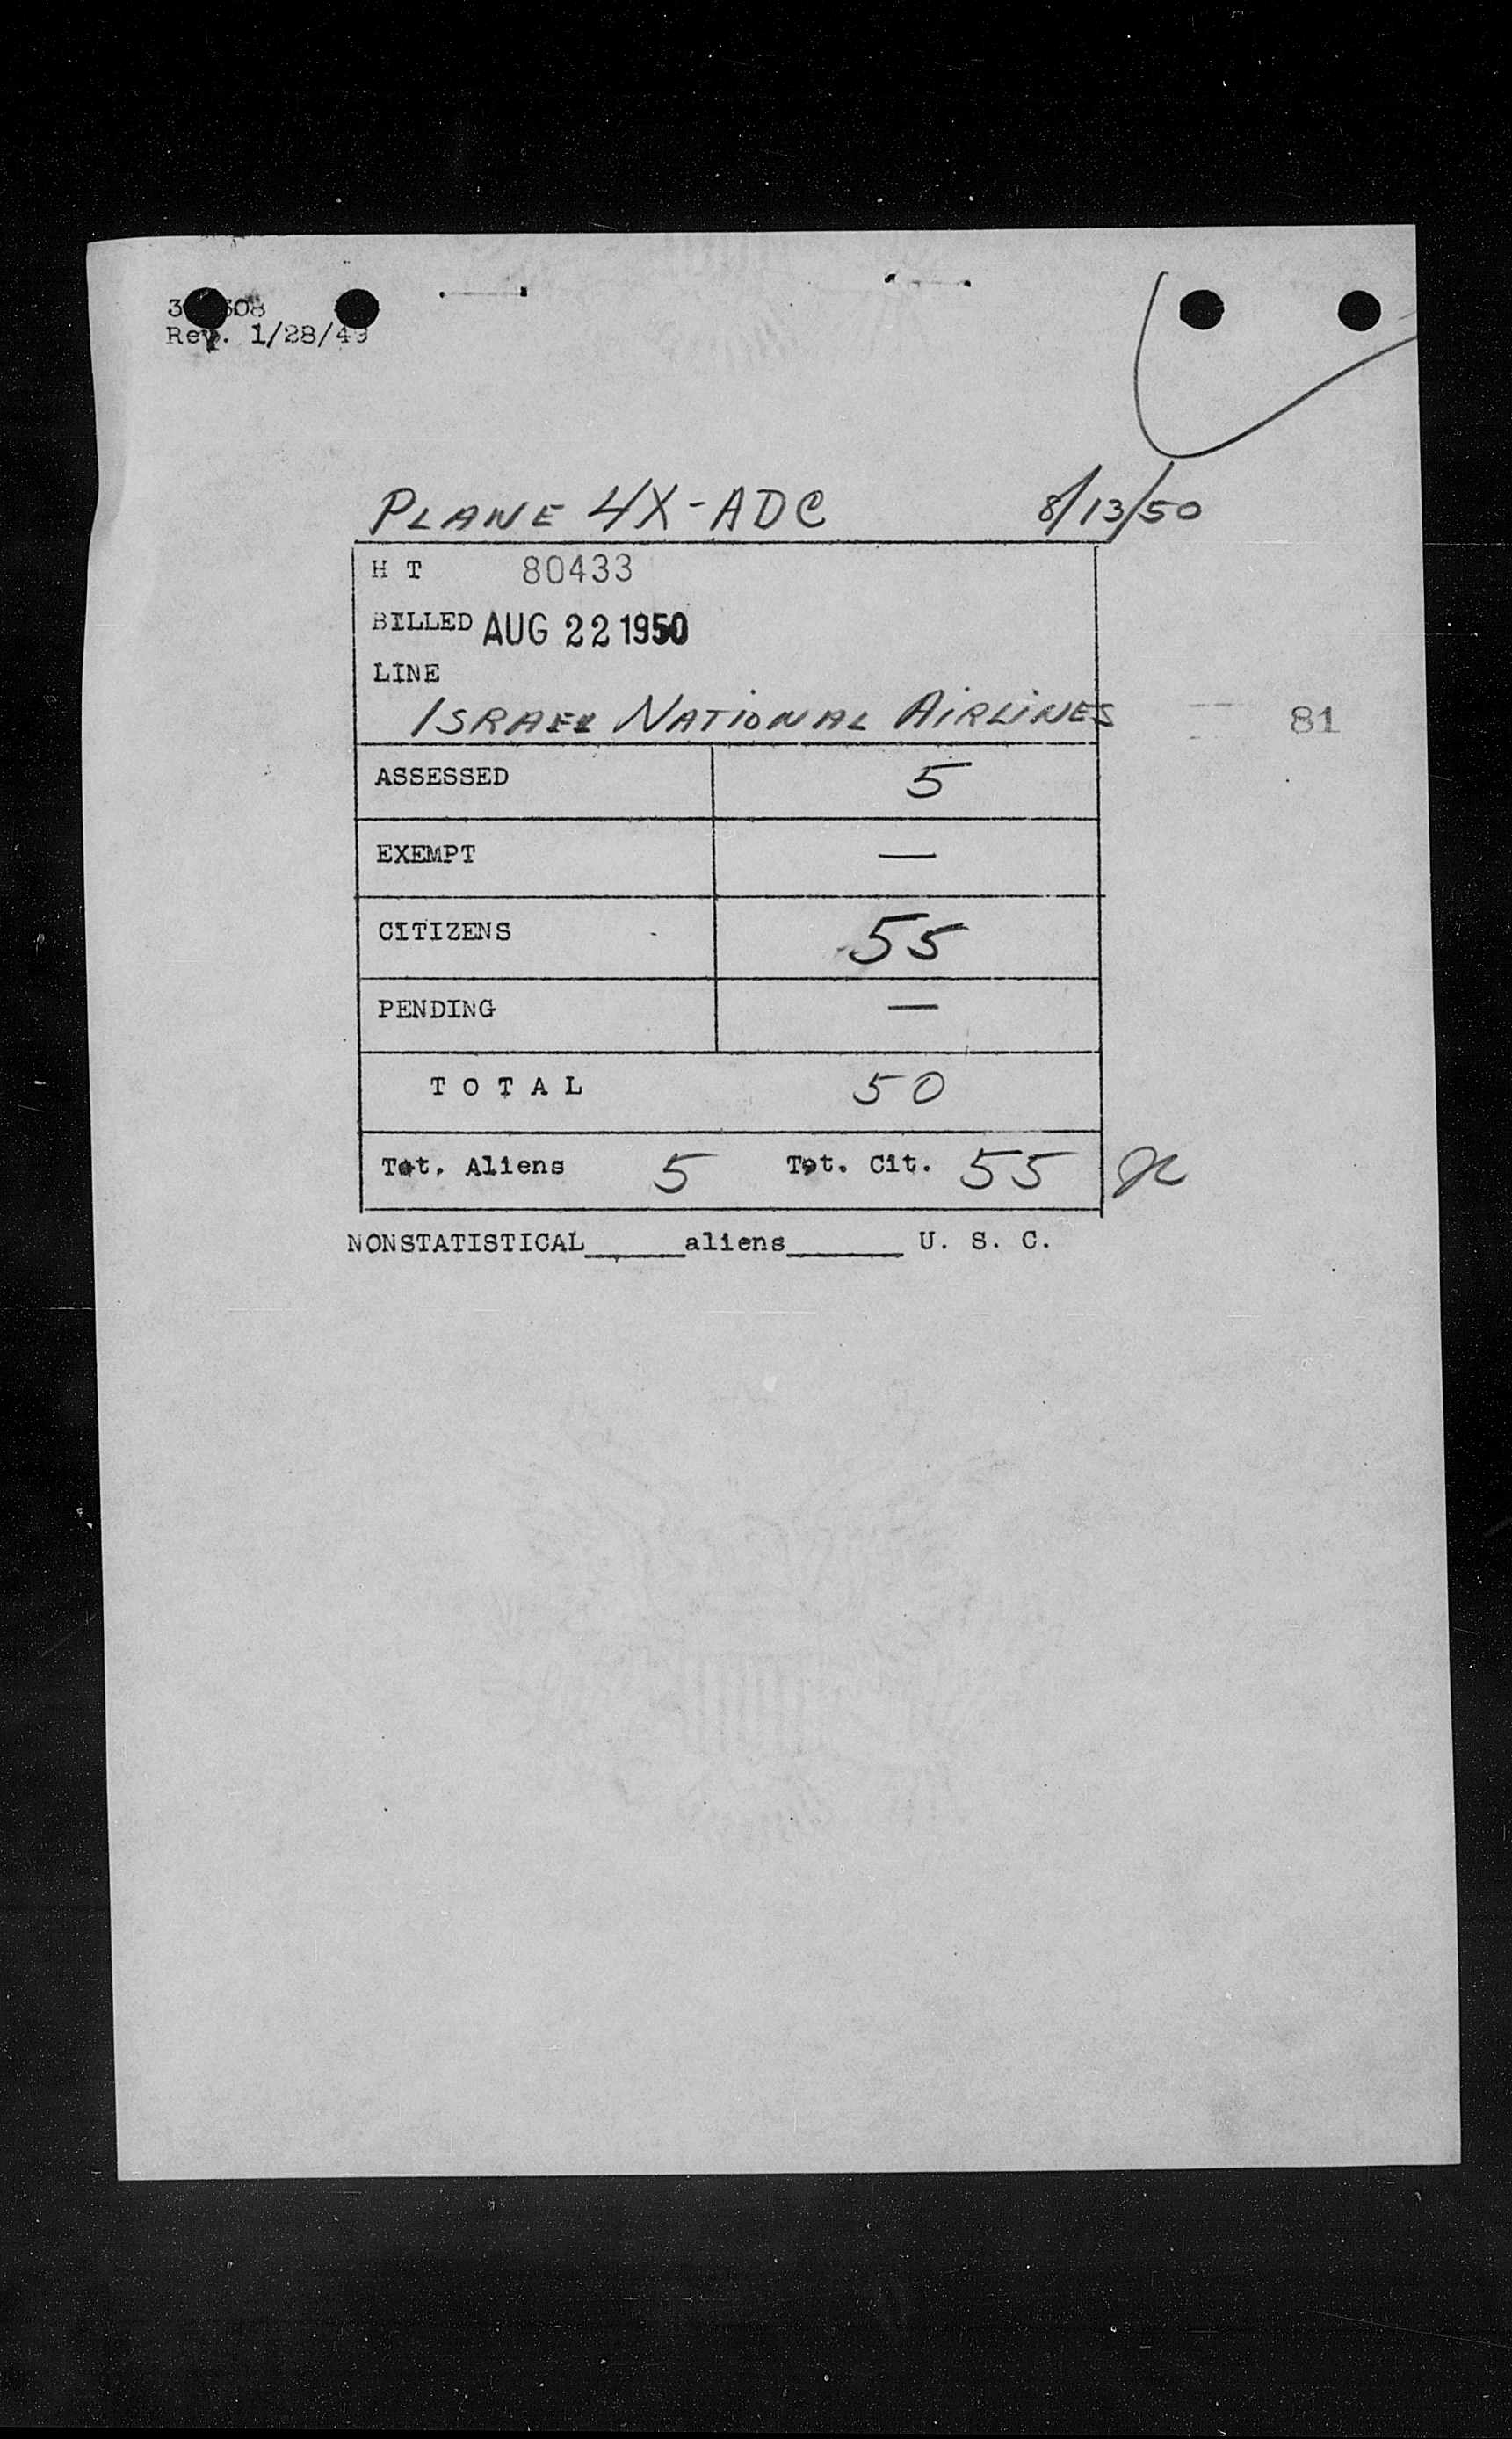 Rev. 1/28/49
PLANE 4X-ADC 8/13/50
H T 80433
BILLED AUG 22 1950
LINE
ISRAEL NATIONAL AIRLINES 81
ASSESSED 5
EXEMPT —
CITIZENS 55
PENDING —
TOTAL 50
Tot. Aliens 5 Tot. Cit. 55
NONSTATISTICAL_____aliens______ U. S. C.